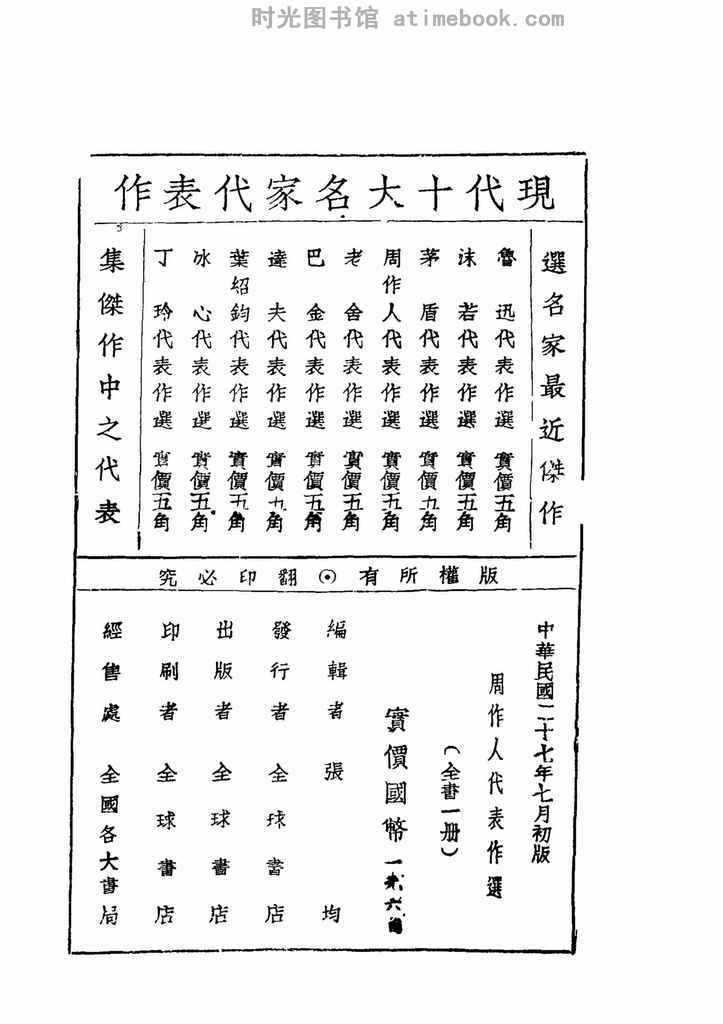 时光图书馆 atimebook.com
現代十大名家代表作
選名家最近傑作
魯迅代表作選 實價五角
沫若代表作選 實價五角
茅盾代表作選 實價五角
周作人代表作選 實價五角
老舍代表作選 實價五角
巴金代表作選 實價五角
達夫代表作選 實價五角
葉紹鈞代表作選 實價五角
冰心代表作選 實價五角
丁玲代表作選 實價五角
集傑作中之代表
版權所有⊙翻印必究
中華民國二十七年七月初版
周作人代表作選
(全書一册)
實價國幣
編輯者 張均
發行者 全球書店
出版者 全球書店
印刷者 全球書店
經售處 全國各大書局